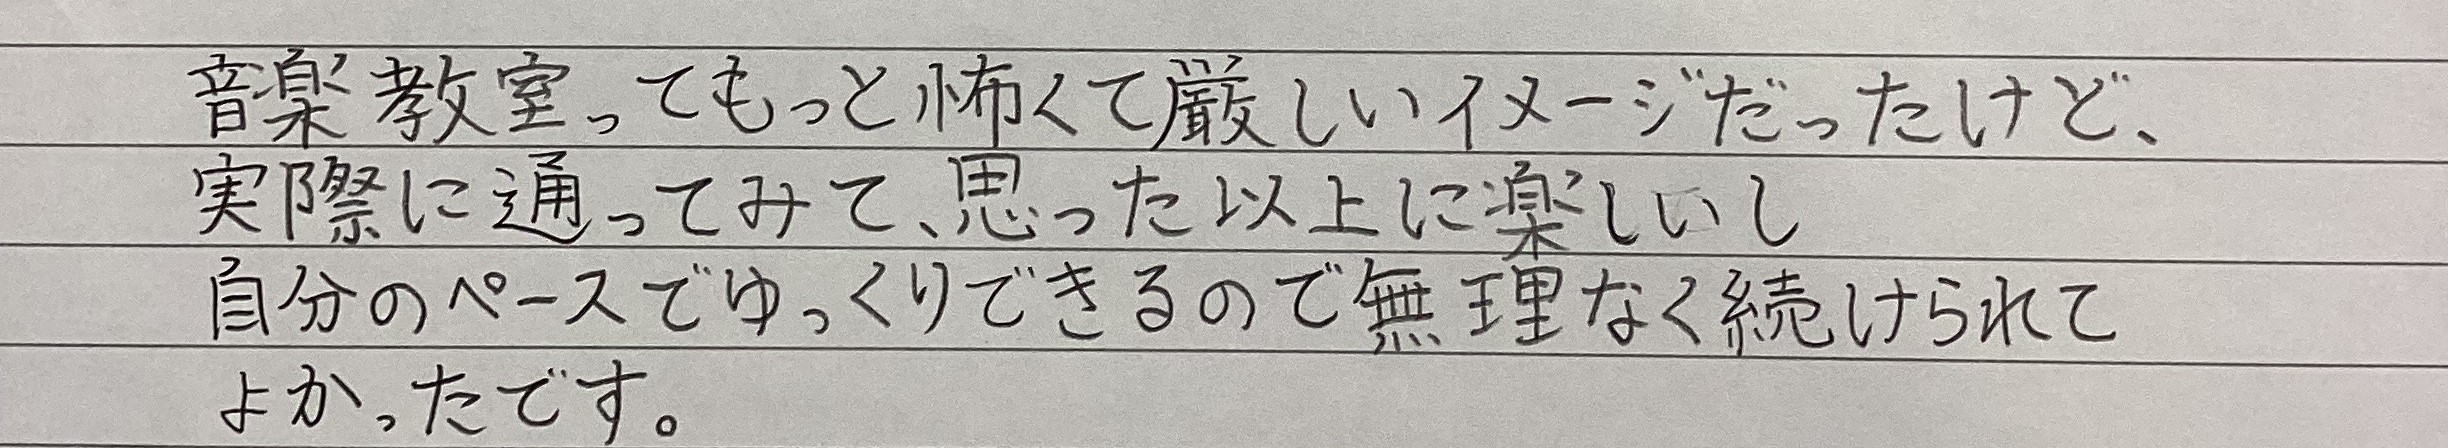 音楽教室ってもっと怖くて厳しいイメージだったけど、
実際に通ってみて、思った以上に楽しいし
自分のペースでゆっくりできるので無理なく続けられて
よかったです。